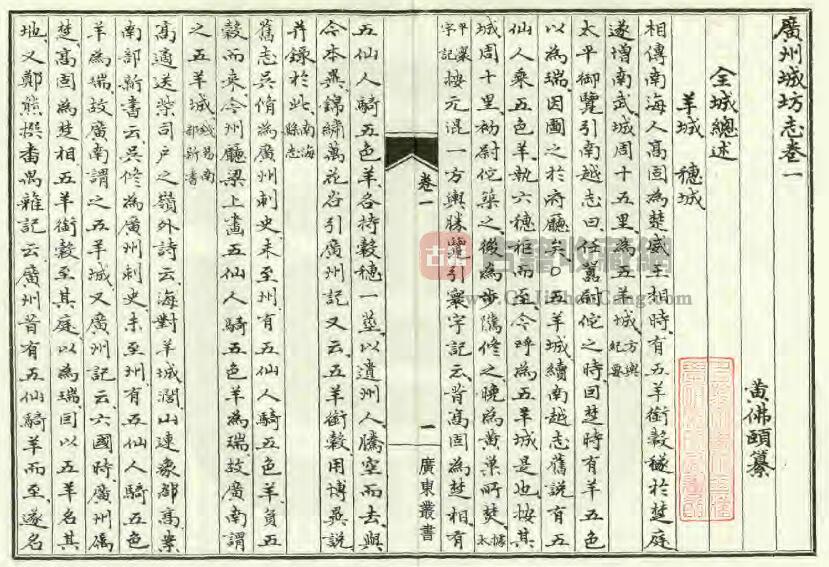 廣州城坊志卷一
黃佛頤纂
全城總述
羊城 穗城
相傳南海人高固為楚威王相時有五羊銜穀穟於楚庭
遂增南武城周十五里為五羊城方輿紀要
太平御覽引南越志曰任囂尉佗之時因楚時有羊五色
以為瑞因圖之於府廳矣○五羊城續南越志舊說有五
仙人乘五色羊執六穗秬而至今呼為五羊城是也按其
城周十里初尉佗築之後為步隲修之晚為黃巢所焚太平寰宇記
按元混一方輿勝覽引寰宇記云昔高固為楚相有
卷一
一
廣東叢書
五仙人騎五色羊各持穀穗一莖以遺州人騰空而去與
今本異錦繡萬花谷引廣州記又云五羊銜穀用博異說
并錄於此南海縣志
舊志吳脩為廣州刺史未至州有五仙人騎五色羊負五
穀而來今州廳梁上畫五仙人騎五色羊為瑞故廣南謂
之五羊城錢易南部新書
高適送柴司戶之嶺外詩云海對羊城濶山連象郡高案
南部新書云吳修為廣州刺史未至州有五仙人騎五色
羊為瑞故廣南謂之五羊城又廣州記云六國時廣州屬
楚高固為楚相五羊銜穀至其庭以為瑞因以五羊名其
地又鄭熊撰番禺雜記云廣州昔有五仙騎羊而至遂名
古籍收藏網
www.GuJiShouCang.com